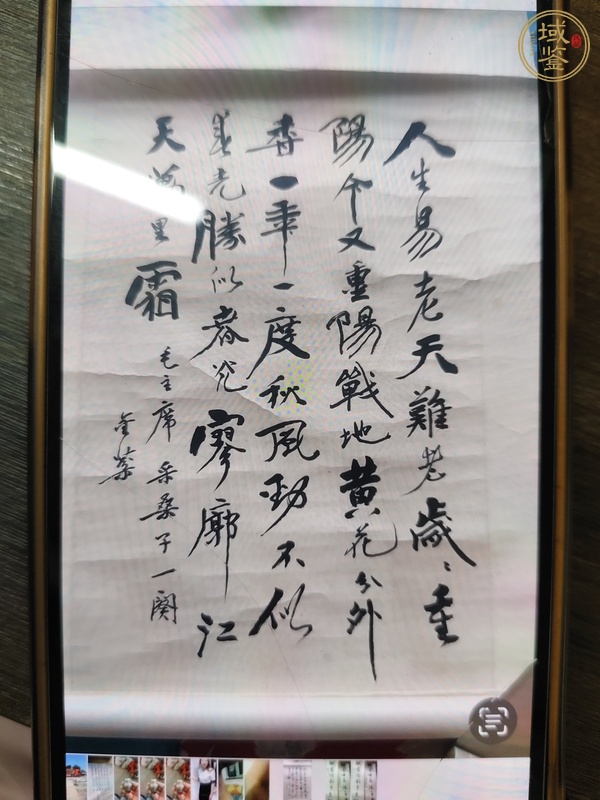 人生易老天難老歲〻重
陽今又重陽戰地黃花分外
香一年一度秋風勁不似
春光勝似春光寥廓江
天萬里霜
毛主席采桑子一闋
域鉴